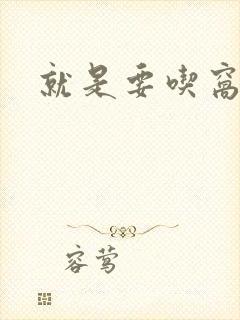 就是要喫窩
容莺